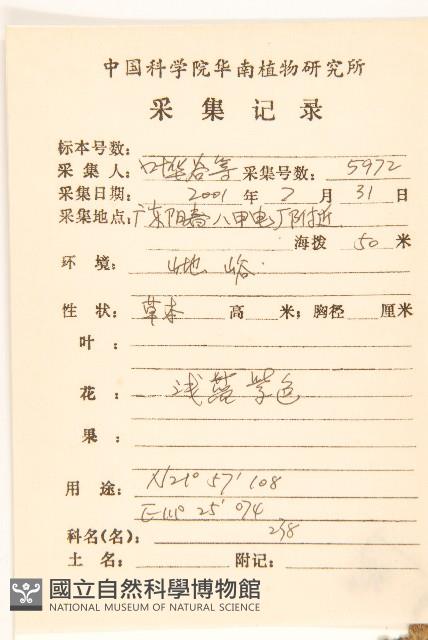 中国科学院华南植物研究所
采集记录
标本号数:
采集人: 叶华谷等 采集号数: 5972
采集日期: 2001 年 7 月 31 日
采集地点: 广东阳春八甲电厂附近
海拨 50 米
环境: 山地 峪
性状: 草本 高 米; 胸径 厘米
叶:
花: 浅蓝紫色
果:
用途: N21° 57' 108
E111° 25' 074
科名(名): 238
土名: 附记:
國立自然科學博物館
NATIONAL MUSEUM OF NATURAL SCIENCE